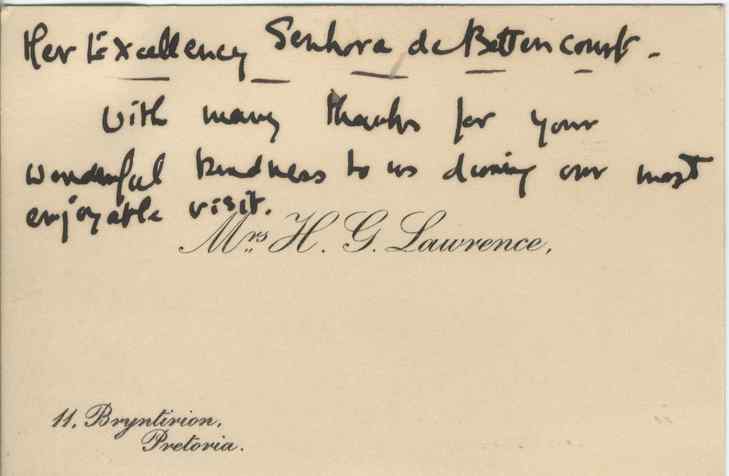 Her Excellency Senhora de Bettencourt.
With many thanks for your
wonderful kindness to us during our most
enjoyable visit.
Mrs H. G. Lawrence,
11, Bryntirion,
Pretoria.